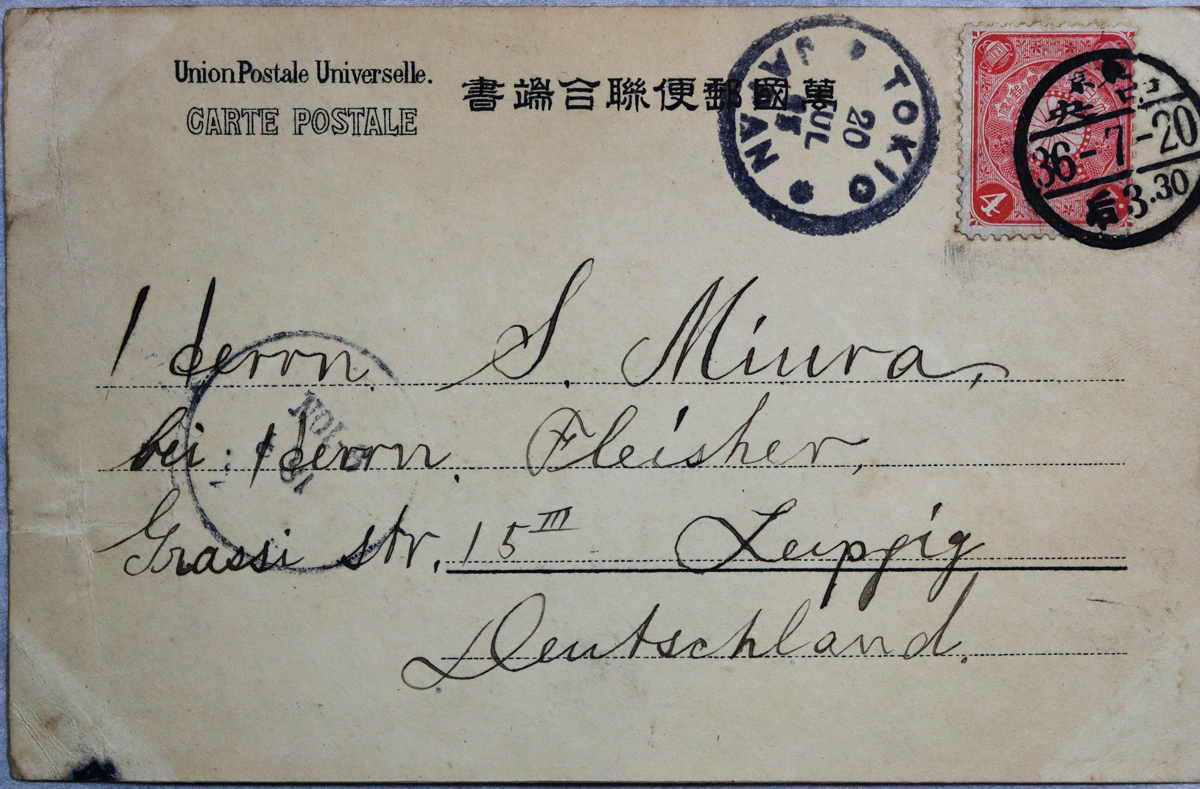 Union Postale Universelle.
CARTE POSTALE
書端合聯便郵國萬
TOKIO
20
JUL
JAPAN
4
36-7-20
后3.30
Herrn. S. Miura,
bei Herrn. Fleisher,
Grassi str. 15 III Leipzig
Deutschland.